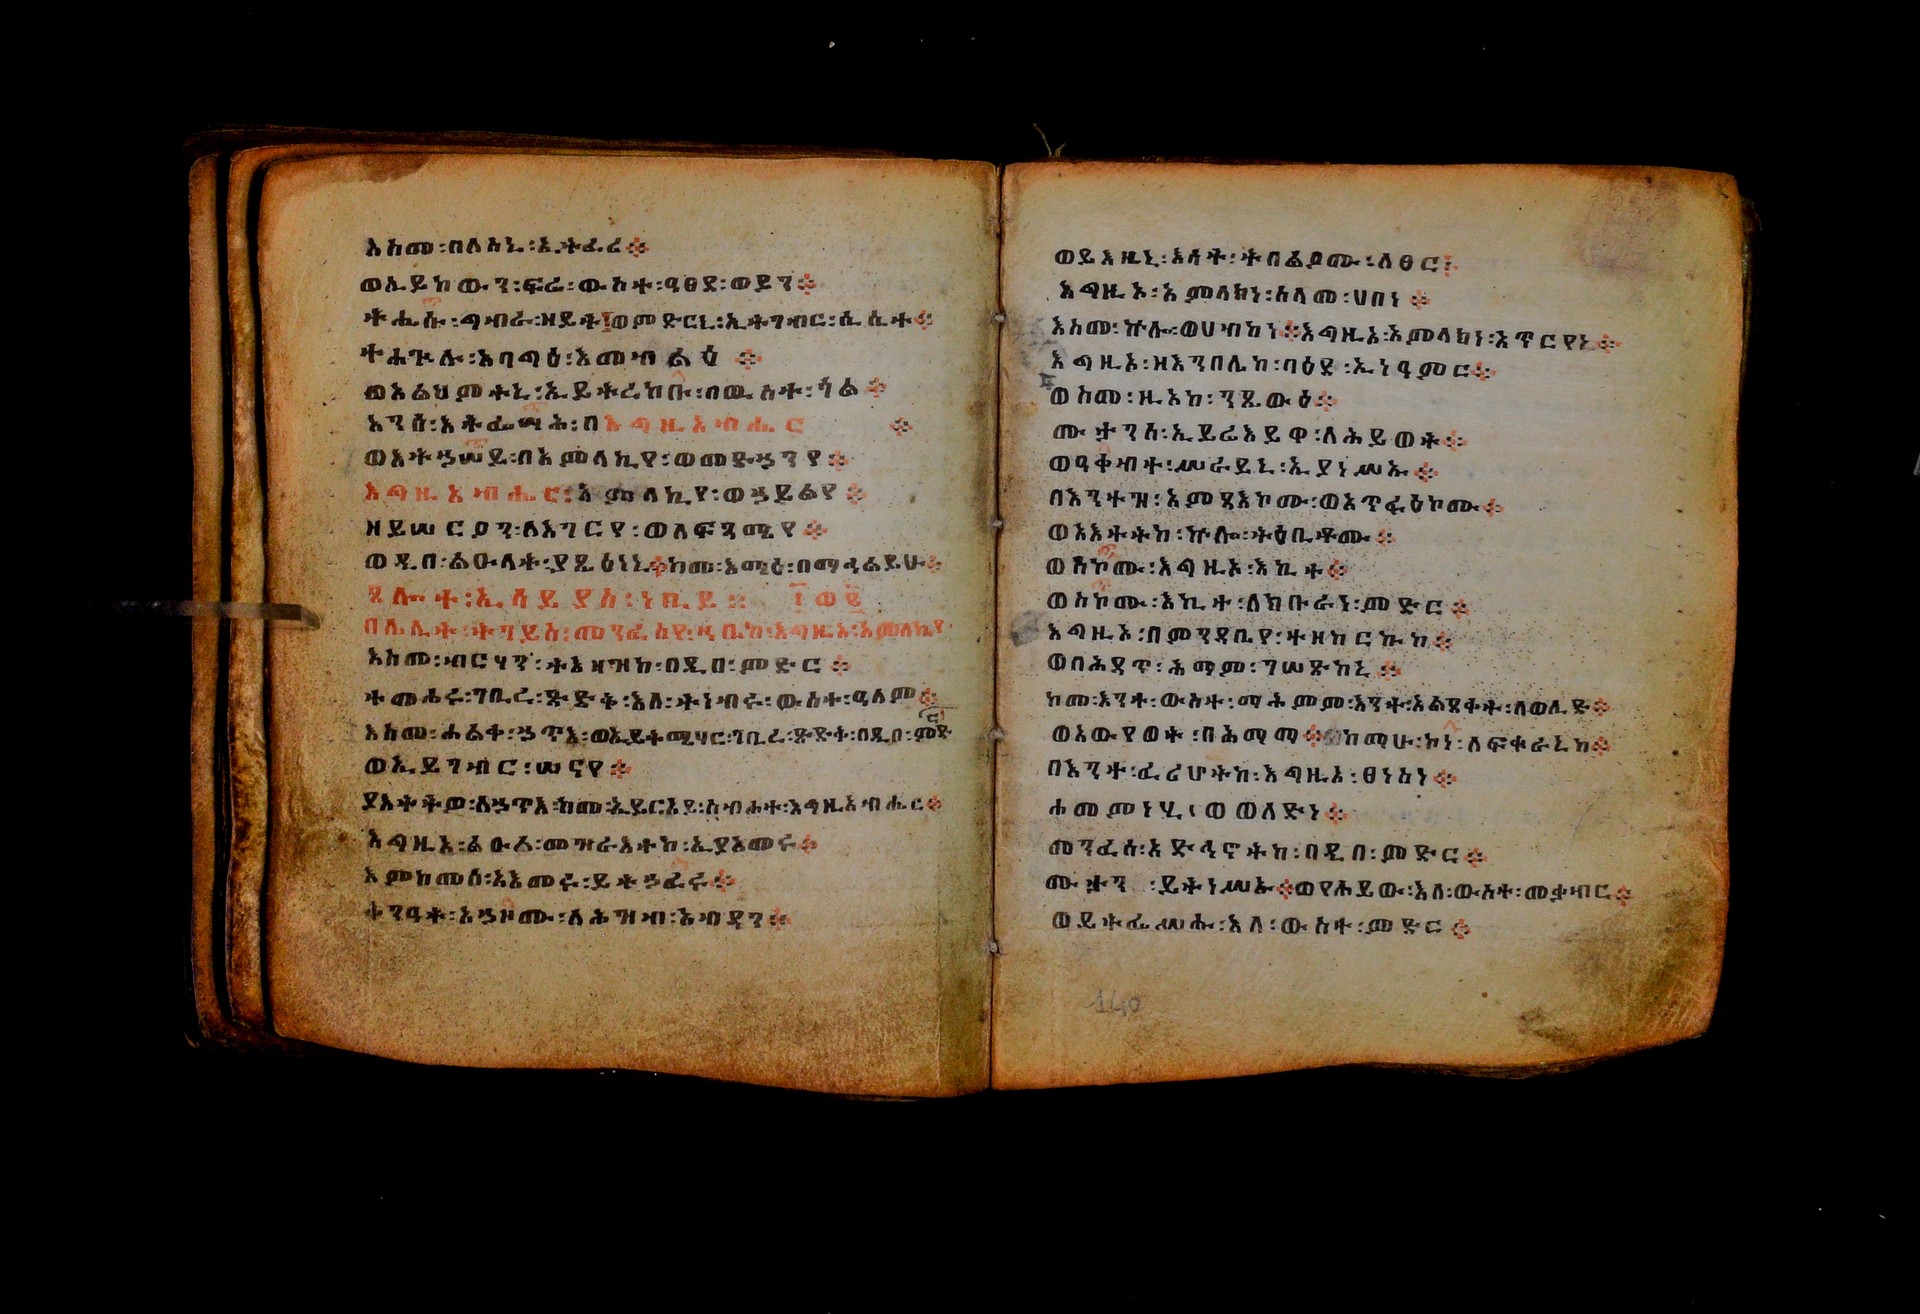 እስመ፡በለስኒ፡ኢትፈሪ፨
ወኢይከውን፡ፍሬ፡ውስተ፡ዓፀደ፡ወይን፨
ትሔሱ፡ግብራ፡ዘይት፨ወምድርኒ፡ኢትገብር፡ሲሲተ፨
ተሐጕሉ፡አባግዕ፡እመብልዕ፨
ወአልህምተኒ፡ኢይትረከቡ፡በዉስተ፡ጎል፨
አንሰ፡እትፌሣሕ፡በእግዚአብሔር፨
ወእትኃሠይ፡በአምላኪየ፡ወመድኃንየ፨
እግዚአብሔር፡አምላኪየ፡ወኃይልየ፨
ዘይሠርዖን፡ለእገርየ፡ወለፍጻሜየ፨
ወዲበ፡ልዑላት፡ያጺዕነኒ፨ከመ፡እማዕ፡በማኅልይሁ፨
ጸሎት፡ኢሳይያስ፡ነቢይ። ፲ወ፪
በሌሊት፡ትገይስ፡መንፈስየ፡ኀቤከ፡እግዚኦ፡አምላኪየ፡
እስመ፡ብርሃን፡ትእዛዝከ፡በዲበ፡ምድር፨
ተመሐሩ፡ገቢረ፡ጽድቅ፡እለ፡ትነብሩ፡ውስተ፡ዓለም፨
እስመ፡ሐልቀ፡ኃጥእ፡ወኢይተሚሃር፡ገቢረ፡ጽድቅ፡በዲበ፡ምድር
ወኢይገብር፡ሠናየ፨
ያእትትዎ፡ለኃጥእ፡ከመ፡ኢይርአይ፡ስብሐተ፡እግዚአብሔር፨
እግዚኦ፡ልዑል፡መዝራእትከ፡ኢያእመሩ፨
እምከመሰ፡አእመሩ፡ይትኃፈሩ፨
ቅንዓት፡አኃዞሙ፡ለሕዝብ፡አብዳን፨
ወይእዚኒ፡እሳት፡ትበልዖሙ፡ለፀር፨
እግዚኦ፡አምላክነ፡ሰላመ፡ሀበነ፨
እስመ፡ኵሎ፡ወሀብከነ፨እግዚኦ፡አምላክነ፡አጥርየነ፨
እግዚኦ፡ዘእንበሌከ፡ባዕደ፡ኢነዓምር፨
ወስመ፡ዚአከ፡ንጼውዕ፨
ሙታንሰ፡ኢይሬእይዋ፡ለሕይወት፨
ወዓቀብት፡ሥራይኒ፡ኢያነሥኡ፨
በእንተዝ፡አምጻእኮሙ፡ወአጥፋዕኮሙ፨
ወአእተትከ፡ኵሎ፡ተዕቢቶሙ፨
ወሰኮሙ፡እግዚኦ፡እኪተ፨
ወሰኮሙ፡እኪተ፡ለክቡራነ፡ምድር፨
እግዚኦ፡በምንዳቤየ፡ተዘከርኩከ፨
ወበሕዳጥ፡ሕማም፡ገሠጽከኒ፨
ከመ፡እንተ፡ውስተ፡ማሕምም፡እንተ፡አልጸቀት፡ለወሊድ፨
ወአውየወት፡በሕማማ፨ከማሁ፡ኮነ፡ለፍቁራኒከ፨
በእንተ፡ፈሪሆትከ፡እግዚኦ፡ፀነስነ፨
ሐመምነሂ፡ወወለድነ፨
መንፈሰ፡አድኅኖትከ፡በዲበ፡ምድር፨
ሙታን፡ይትነሥኡ፨ወየሕይው፡እለ፡ውስተ፡መቃብር፨
ወይትፌሥሑ፡እለ፡ውስተ፡ምድር፨
140